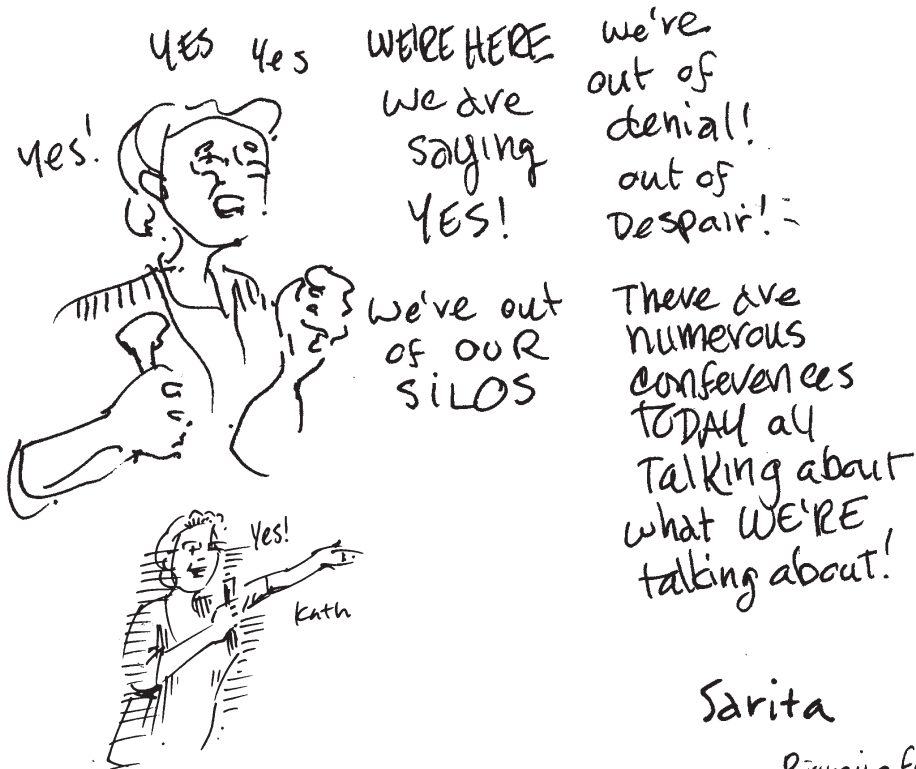 YES Yes
Yes!
WE'RE HERE
we are
saying
YES!
we've out
of OUR
SILOS
we're
out of
denial!
out of
Despair!
There are
numerous
conferences
TODAY all
Talking about
what WE'RE
talking about!
Yes!
Kath
Sarita